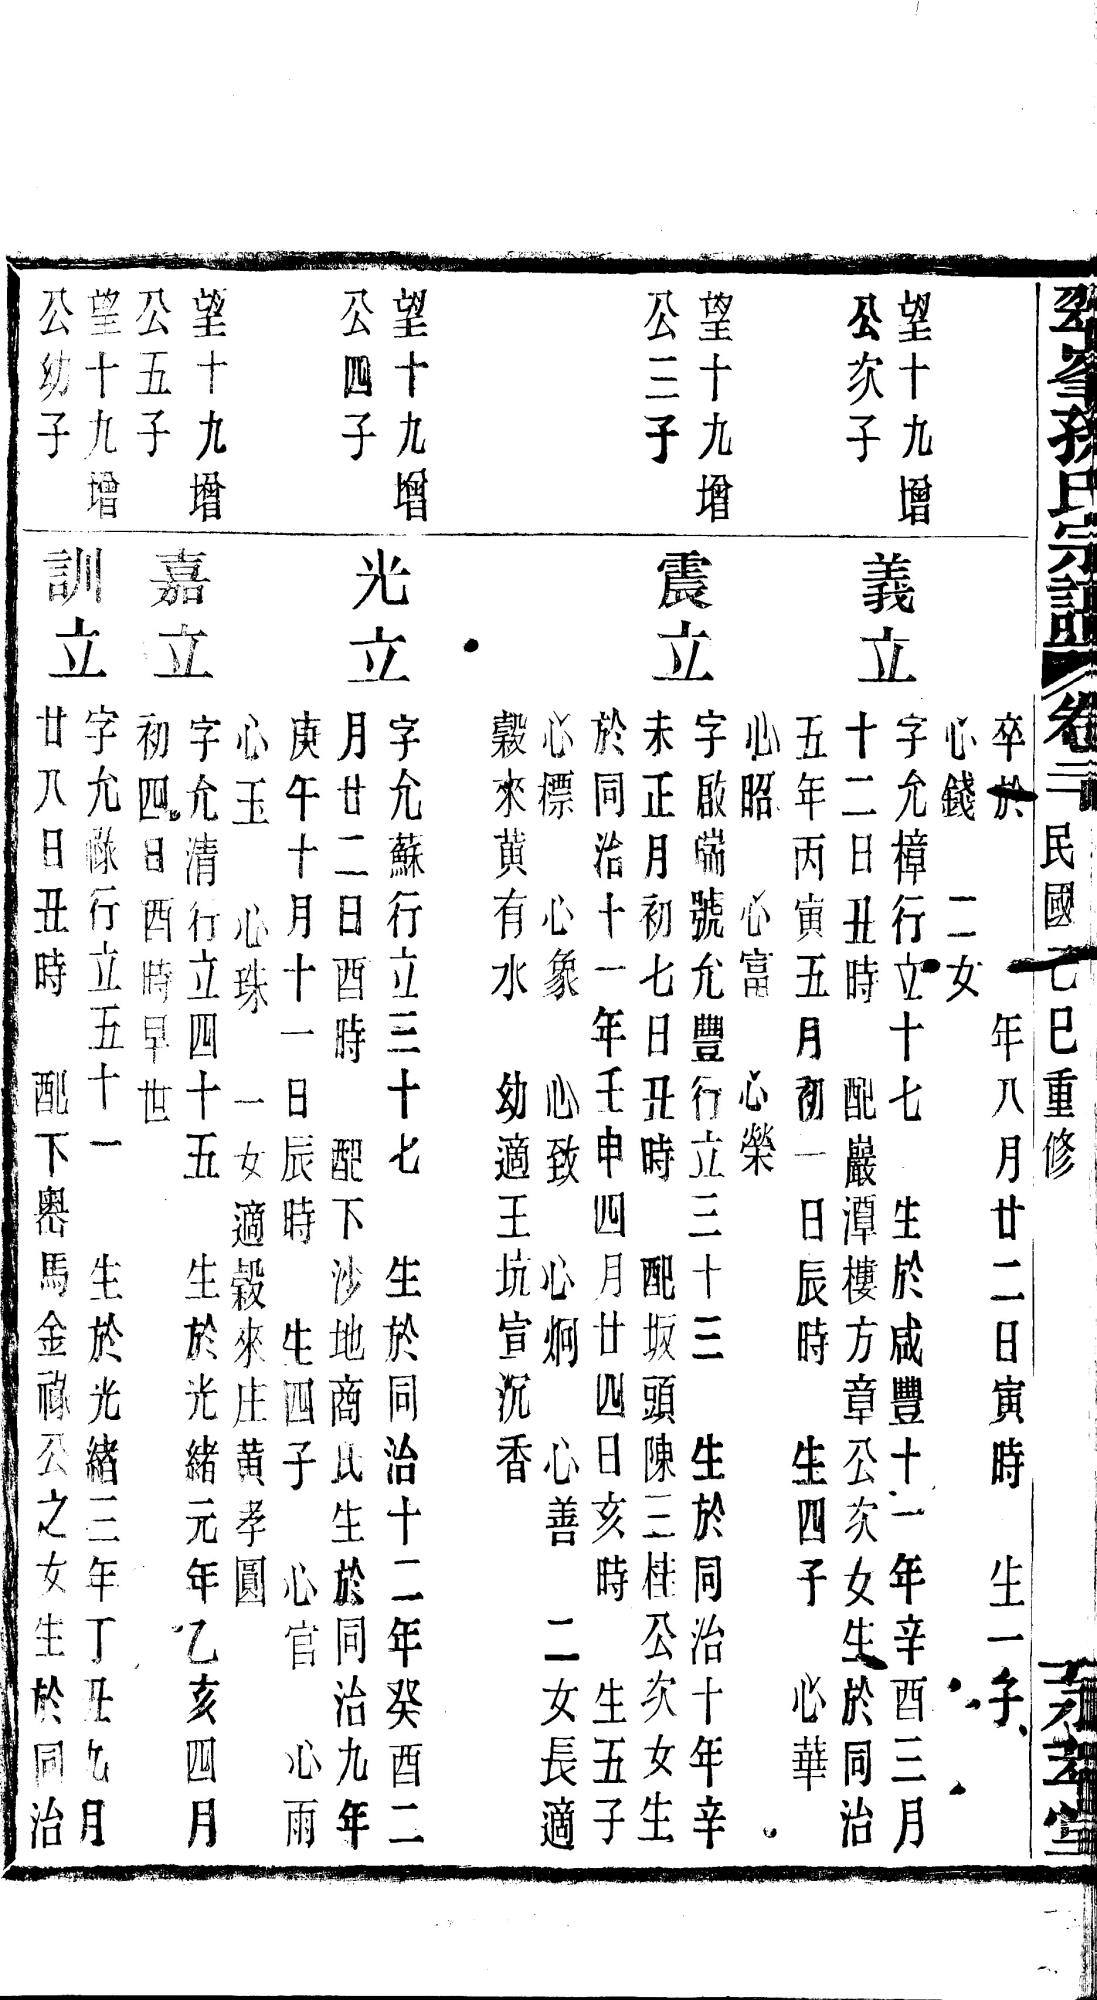 翠峯孫氏宗譜 卷二 民國乙巳重修 永翠堂
卒於 年八月廿二日寅時 生一子
心錢 二女
望十九增
公次子
義立
字允樟行立十七 生於咸豐十一年辛酉三月
十二日丑時 配嚴潭樓方章公次女生於同治
五年丙寅五月初一日辰時 生四子 心華
心昭 心富 心榮
望十九增
公三子
震立
字啟端號允豐行立三十三 生於同治十年辛
未正月初七日丑時 配坂頭陳三桂公次女生
於同治十一年壬申四月廿四日亥時 生五子
心標 心象 心致 心炯 心善 二女長適
穀來黃有水 幼適王坑宣沉香
望十九增
公四子
光立
字允蘇行立三十七 生於同治十二年癸酉二
月廿二日酉時 配下沙地商氏生於同治九年
庚午十月十一日辰時 生四子 心官 心雨
心玉 心珠 一女適穀來庄黃孝圓
望十九增
公五子
嘉立
字允清行立四十五 生於光緒元年乙亥四月
初四日酉時早世
望十九增
公幼子
訓立
字允祿行立五十一 生於光緒三年丁丑九月
廿八日丑時 配下嶴馬金祿公之女生於同治